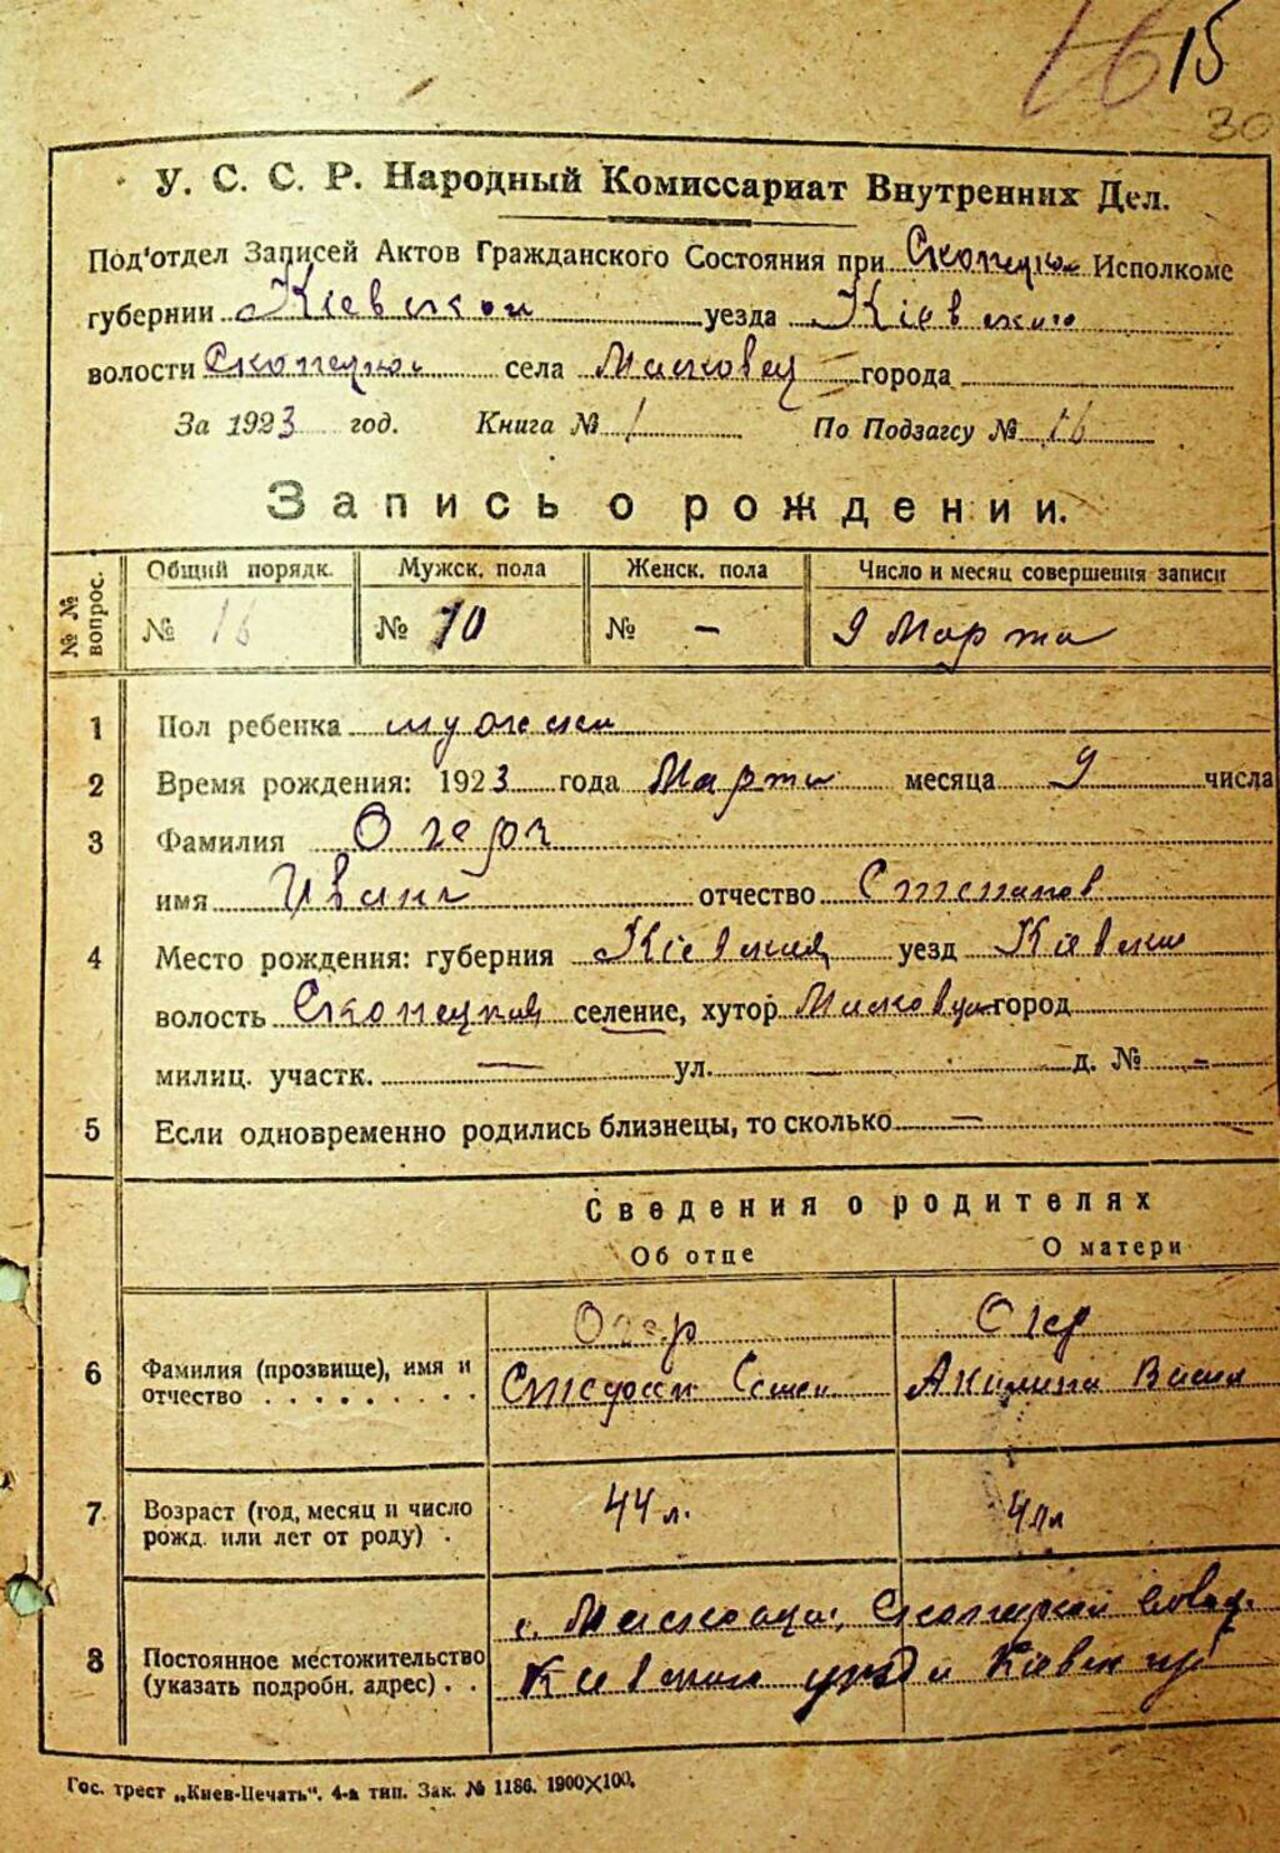 16 15
30
У. С. С. Р. Народный Комиссариат Внутренних Дел.
Под'отдел Записей Актов Гражданского Состояния при Исполкоме
губернии Кіевской уезда Кіевского
волости села города
За 1923 год. Книга № 1 По Подзагсу № 16
Запись о рождении.
№ № вопрос. Общий порядк. Мужск. пола Женск. пола Число и месяц совершения записи
№ 16 № 10 № – 9 Марта
1 Пол ребенка
2 Время рождения: 1923 года Марта месяца 9 числа
3 Фамилия Огерг
имя Иванг отчество Степанов
4 Место рождения: губерния Кіевская уезд Кіевский
волость Скопецкая селение, хутор город
милиц. участк. — ул. — д. № –
5 Если одновременно родились близнецы, то сколько —
Сведения о родителях
Об отце О матери
Огер Огер
6 Фамилия (прозвище), имя и
отчество . . . . . . . . Акилина Васил
7 Возраст (год, месяц и число 44 л.
рожд. или лет от роду) .
8 Постоянное местожительство
(указать подробн. адрес) . .
Гос. трест „Киев-Печать“. 4-я тип. Зак. № 1186. 1900×100.